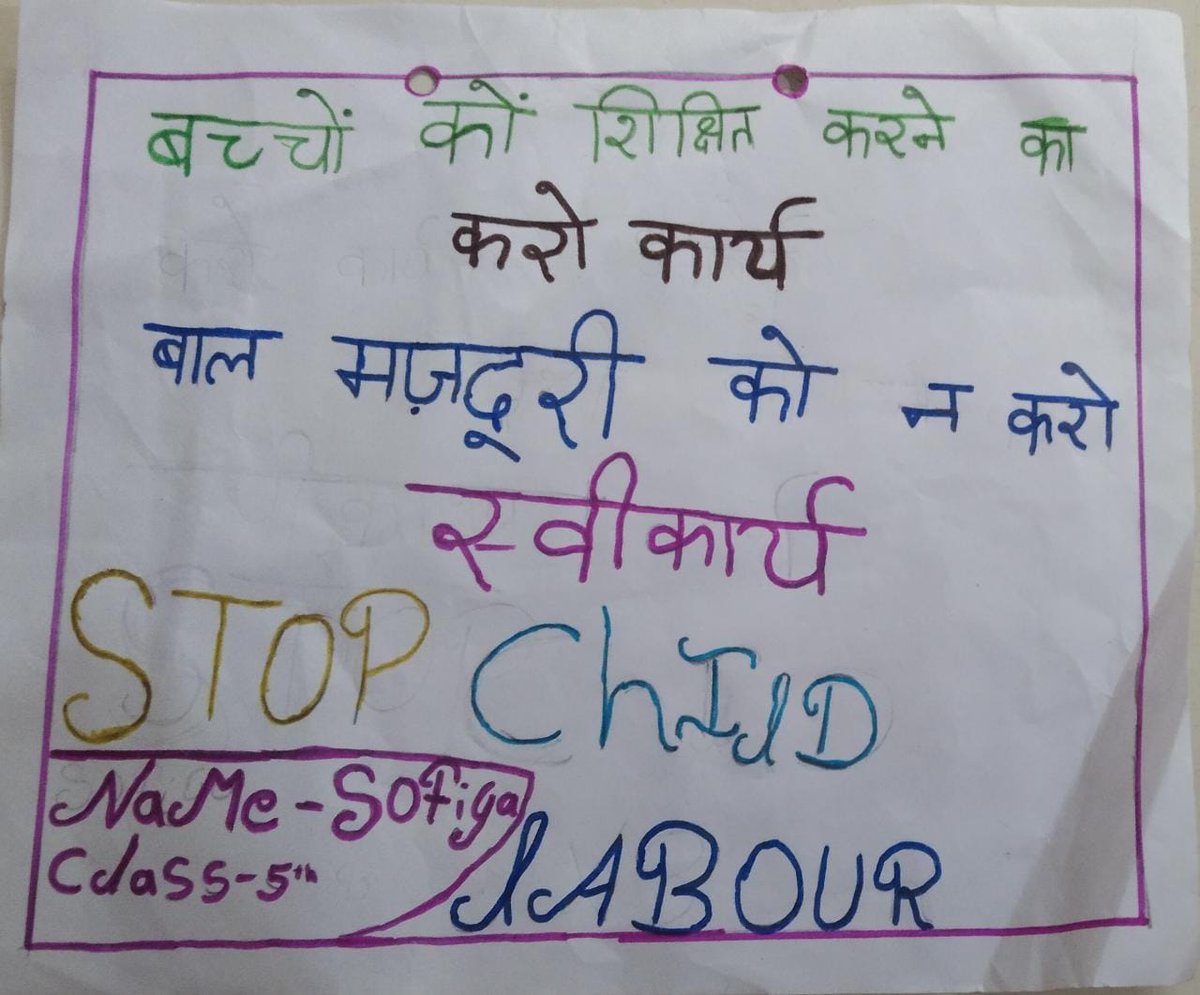 बच्चों कों शिक्षित करने का
करो कार्य
बाल मज़दूरी को न करो
स्वीकार्य
STOP ChILD
LABOUR
NaMe-Sofiya
Class-5th